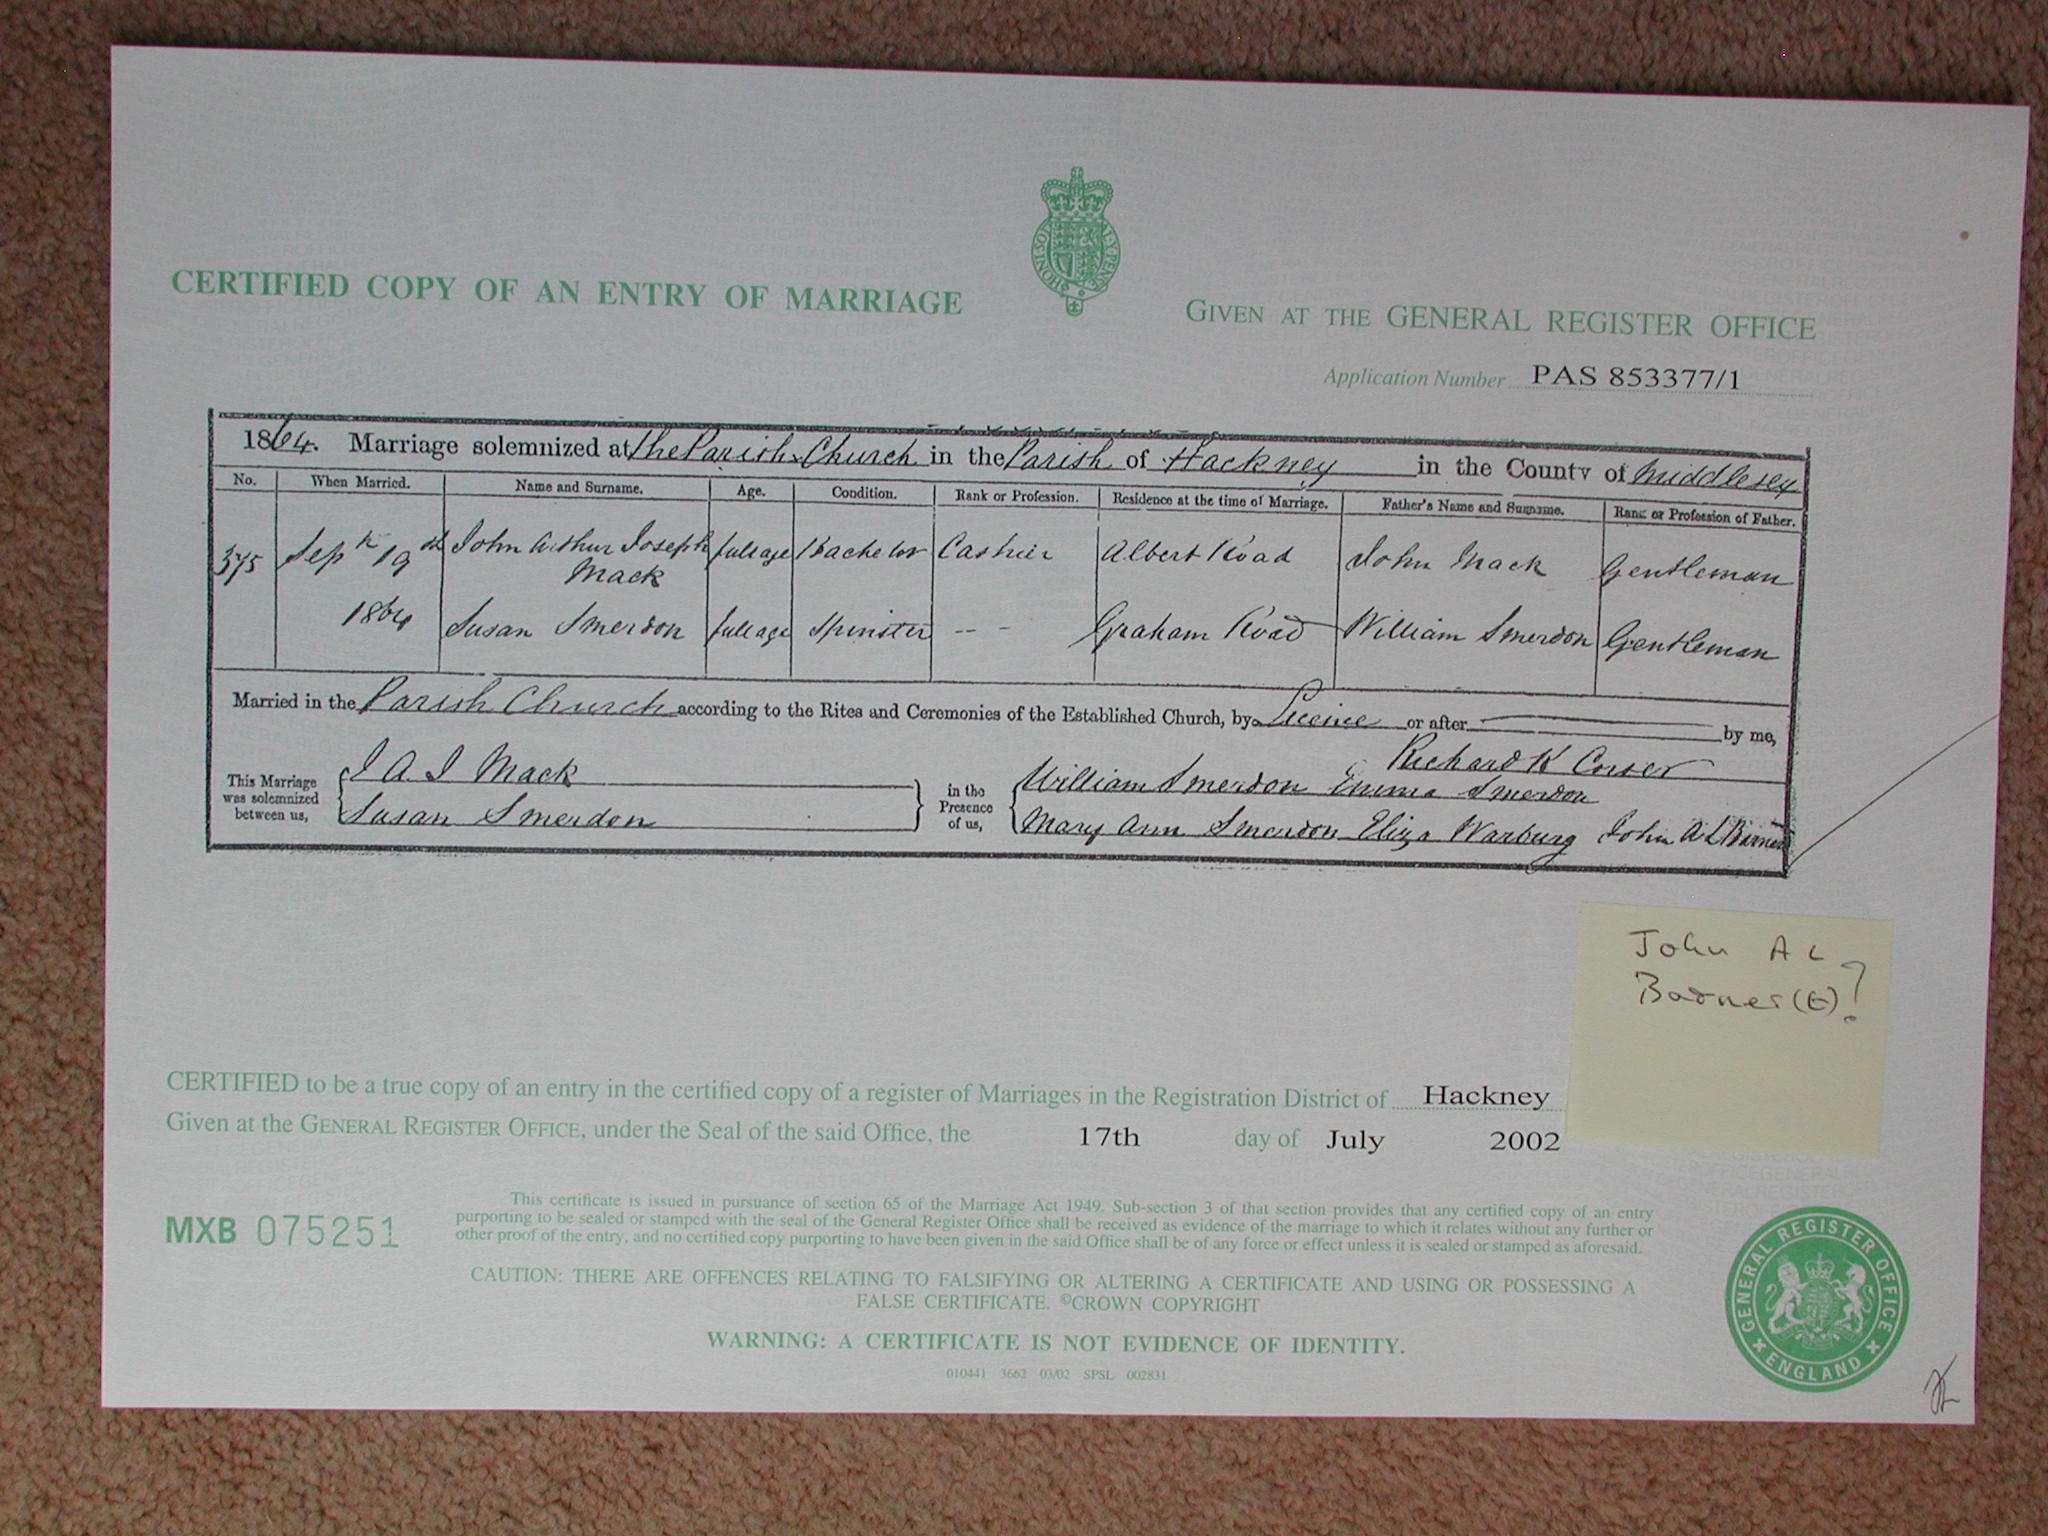 CERTIFIED COPY OF AN ENTRY OF MARRIAGE
HONI SOIT QUI MAL Y PENSE
GIVEN AT THE GENERAL REGISTER OFFICE
Application Number PAS 853377/1
1864. Marriage solemnized at The Parish Church in the Parish of Hackney in the County of Middlesex
No. When Married. Name and Surname. Age. Condition. Rank or Profession. Residence at the time of Marriage. Father's Name and Surname. Rank or Profession of Father.
375 Sep 19 John Arthur Joseph Mack full age Bachelor Cashier Albert Road John Mack Gentleman
1864 Susan Smerdon full age Spinster -- - Graham Road William Smerdon Gentleman
Married in the Parish Church according to the Rites and Ceremonies of the Established Church, by Licence or after by me,
Richard K
This Marriage was solemnized between us,
J A J Mack
Susan Smerdon
in the Presence of us,
William Smerdon Emma Smerdon
Mary Ann Smerdon Eliza Warburg John A L
John A L
Barnes(E)?
CERTIFIED to be a true copy of an entry in the certified copy of a register of Marriages in the Registration District of Hackney
Given at the GENERAL REGISTER OFFICE, under the Seal of the said Office, the 17th day of July 2002
MXB 075251
This certificate is issued in pursuance of section 65 of the Marriage Act 1949. Sub-section 3 of that section provides that any certified copy of an entry
purporting to be sealed or stamped with the seal of the General Register Office shall be received as evidence of the marriage to which it relates without any further or
other proof of the entry, and no certified copy purporting to have been given in the said Office shall be of any force or effect unless it is sealed or stamped as aforesaid.
CAUTION: THERE ARE OFFENCES RELATING TO FALSIFYING OR ALTERING A CERTIFICATE AND USING OR POSSESSING A
FALSE CERTIFICATE. ©CROWN COPYRIGHT
WARNING: A CERTIFICATE IS NOT EVIDENCE OF IDENTITY.
010441 3662 03/02 SPSL 002831
GENERAL REGISTER OFFICE
ENGLAND